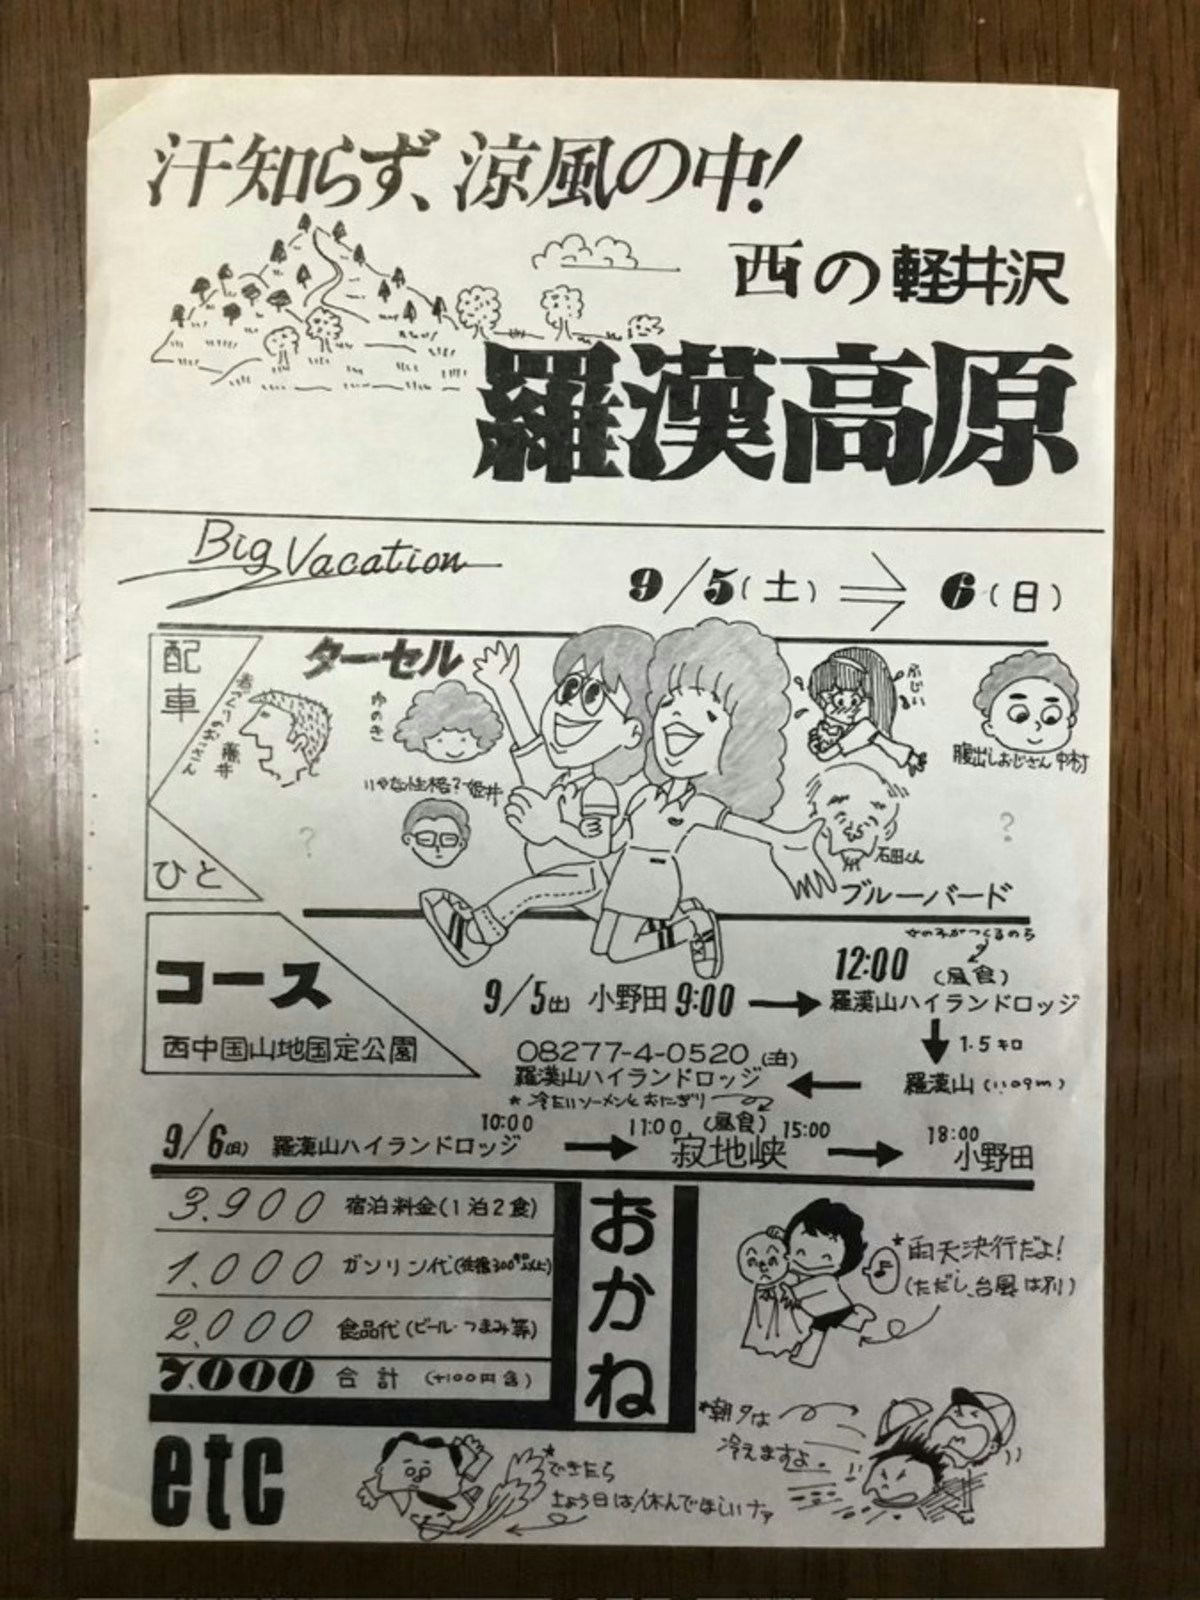 汗知らず、涼風の中!
西の軽井沢
羅漢高原
Big Vacation
9/5(土) ⇒ 6(日)
配車
ターセル
ゆのき
いやな性格?姫井
ふじい
腹出しおじさん 中村
?
?
石田くん
ひと
ブルーバード
コース
西中国山地国定公園
12:00 (昼食)
9/5(土) 小野田 9:00 → 羅漢山ハイランドロッジ
↓ 1.5キロ
羅漢山 (1109m)
08277-4-0520 (泊)
羅漢山ハイランドロッジ ←
*冷たいソーメンとおにぎり
10:00 11:00 (昼食) 15:00 18:00
9/6(日) 羅漢山ハイランドロッジ → 寂地峡 → 小野田
おかね
3.900 宿泊料金(1泊2食)
1.000 ガソリン代
2.000 食品代(ビール・つまみ等)
7.000 合計 (+100円含)
*雨天決行だよ!
(ただし、台風は別)
*朝夕は
冷えますよ
etc
*できたら
土よう日は休んでほしいナァ